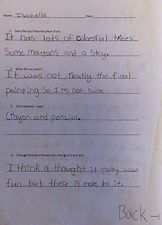 Name: Isabella Date:
1. Describe your favorite piece of art.
It has lots of colorful trees.
Some moutans and a sky.
2. What did you learn?
It was not really the final
painting so I'm not sure.
3. The materials I used:
Crayon and pencial.
4.
I think a thought it really was
fun but there is more to it.
Back →